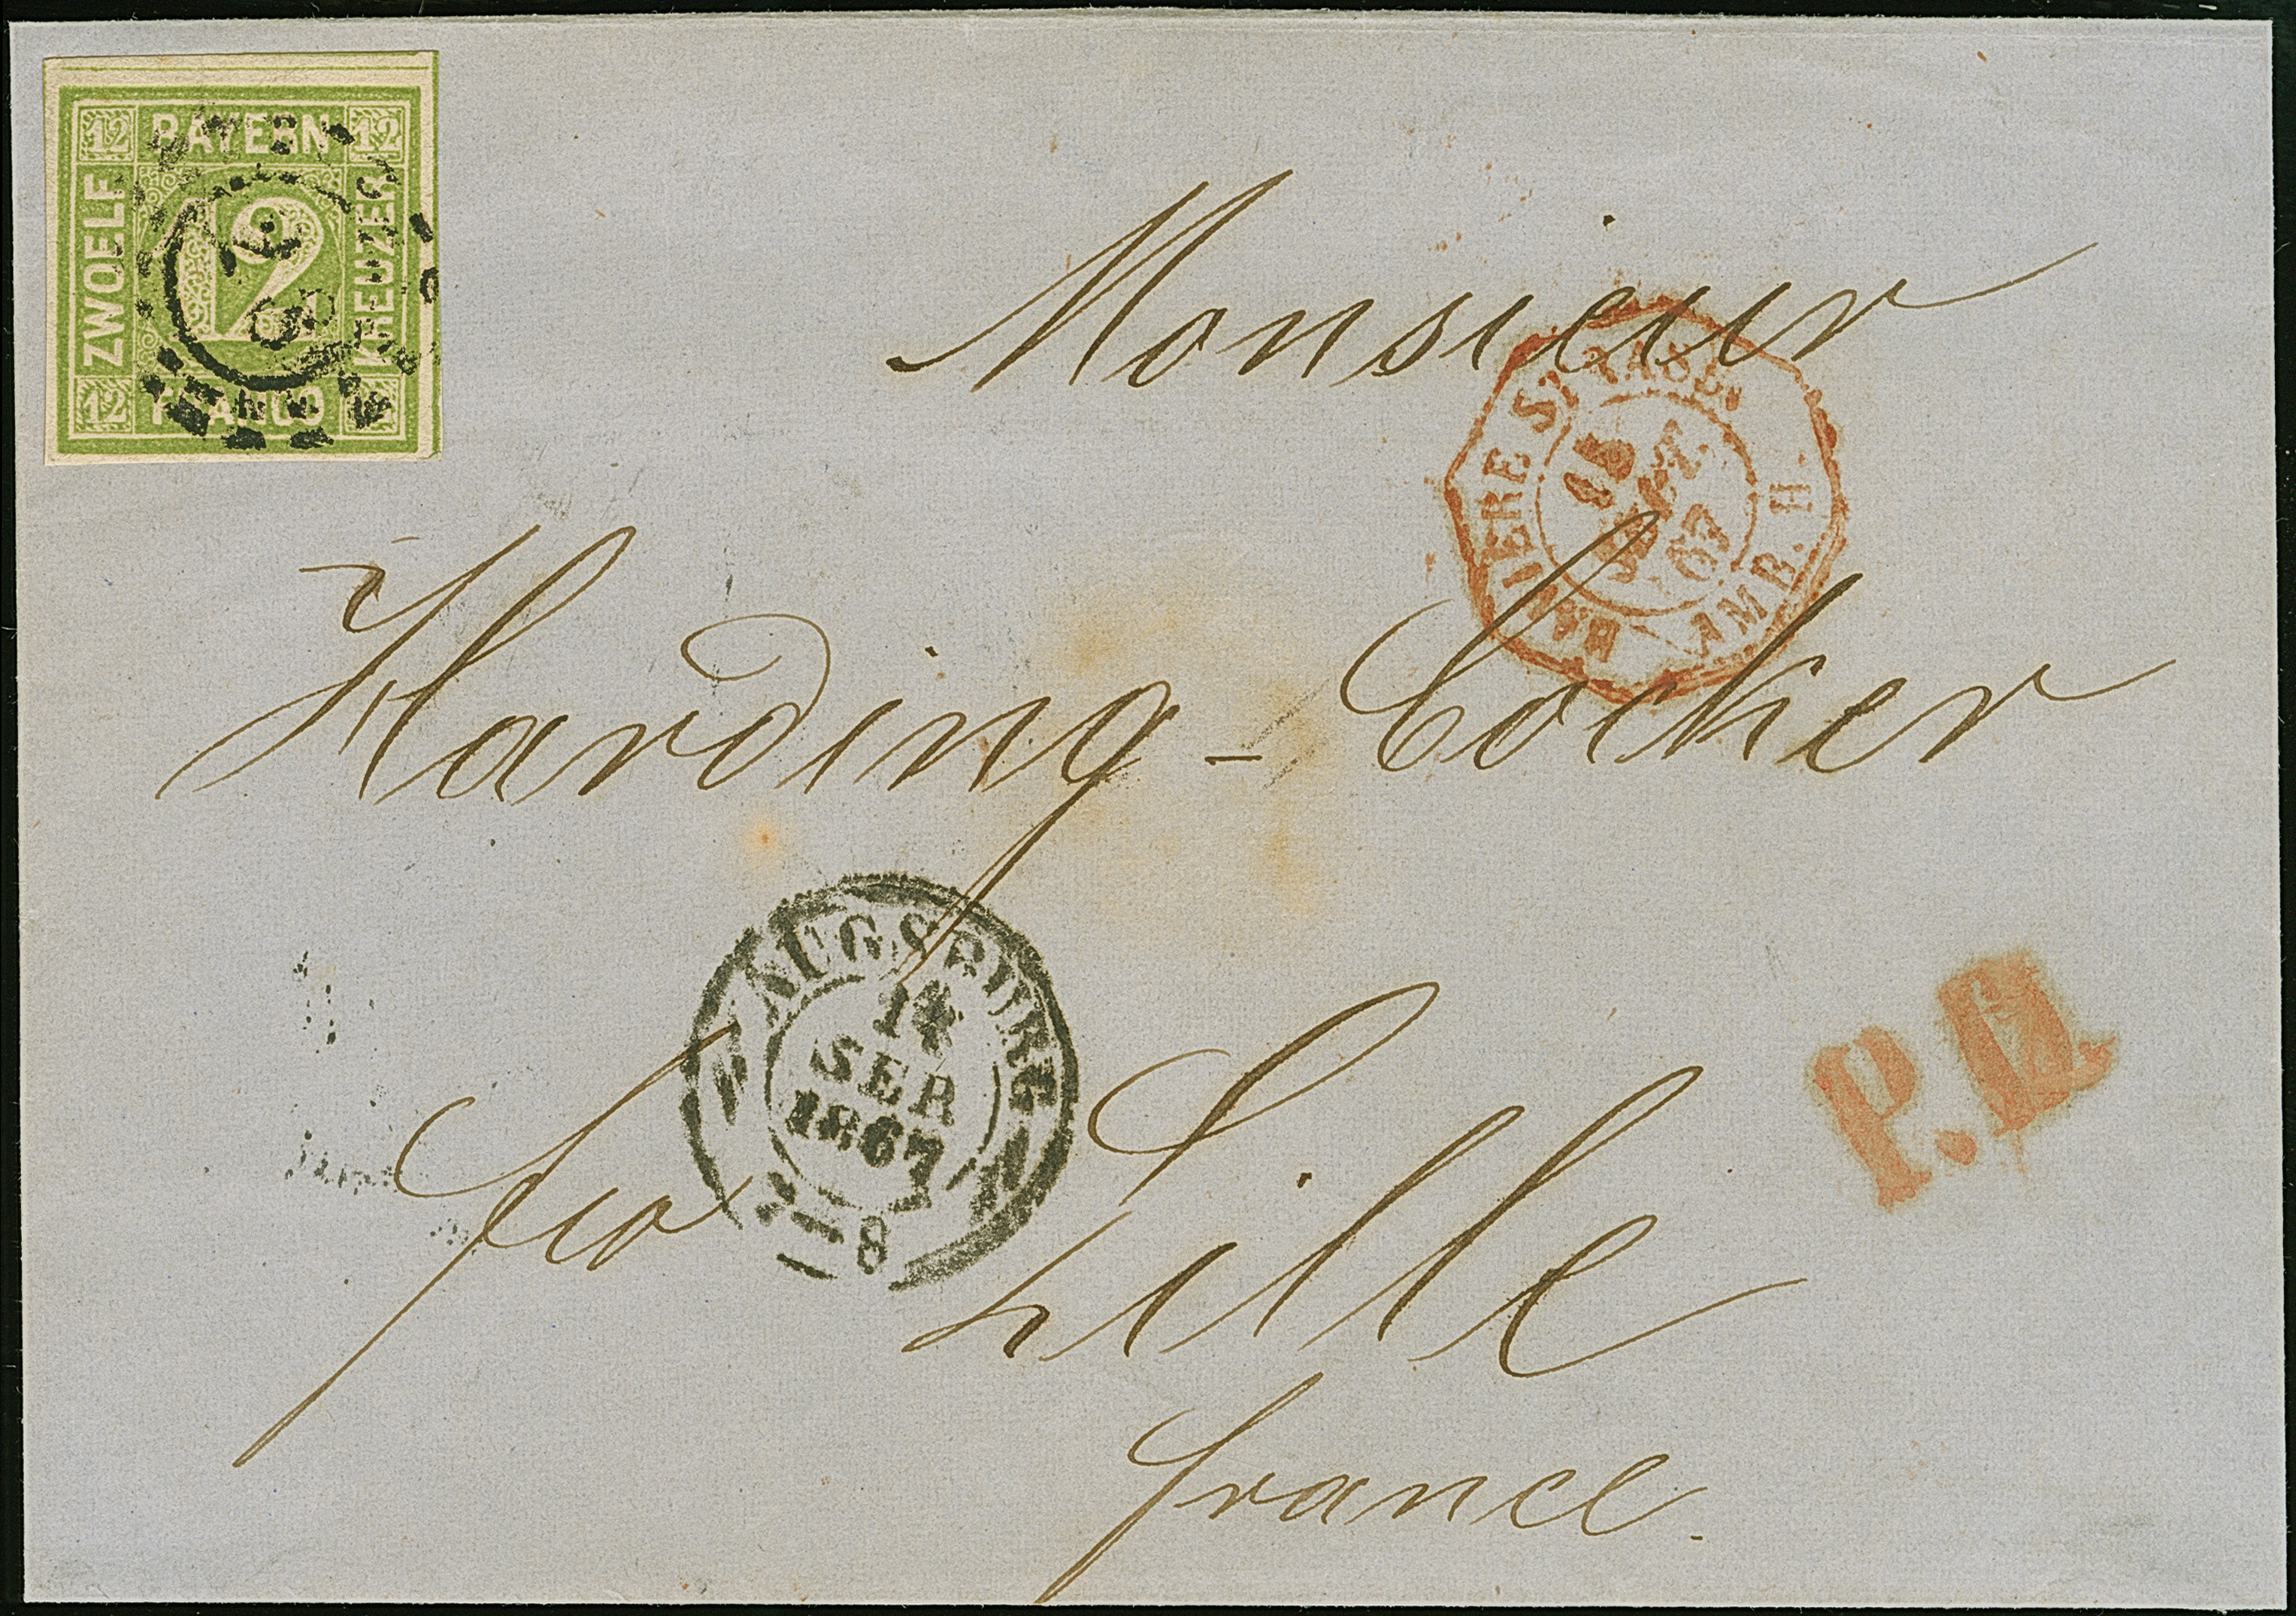 12 BAYERN 12
ZWOELF
KREUZER
12
12 FRANCO 12
Monsieur
BAVIERE STRASB.
15
SEPT.
67
AMB. H.
Harding-Cocker
AUGSBURG
14
SEP
1867
8
P.D.
fco Lille
france.